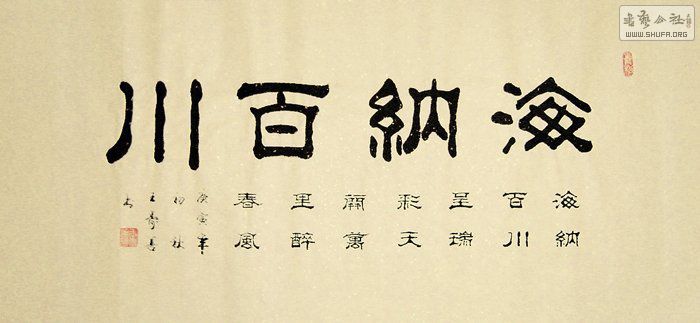 書藝公社
WWW.SHUFA.ORG
海納百川
海納
百川
呈瑞
彩天
開萬
里醉
春風
庚寅年
初秋
王壽
书